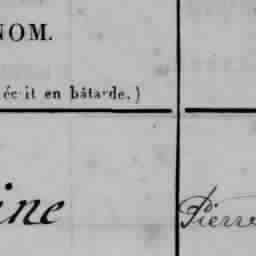 NOM.
écrit en bâtarde.)
ine Pierre